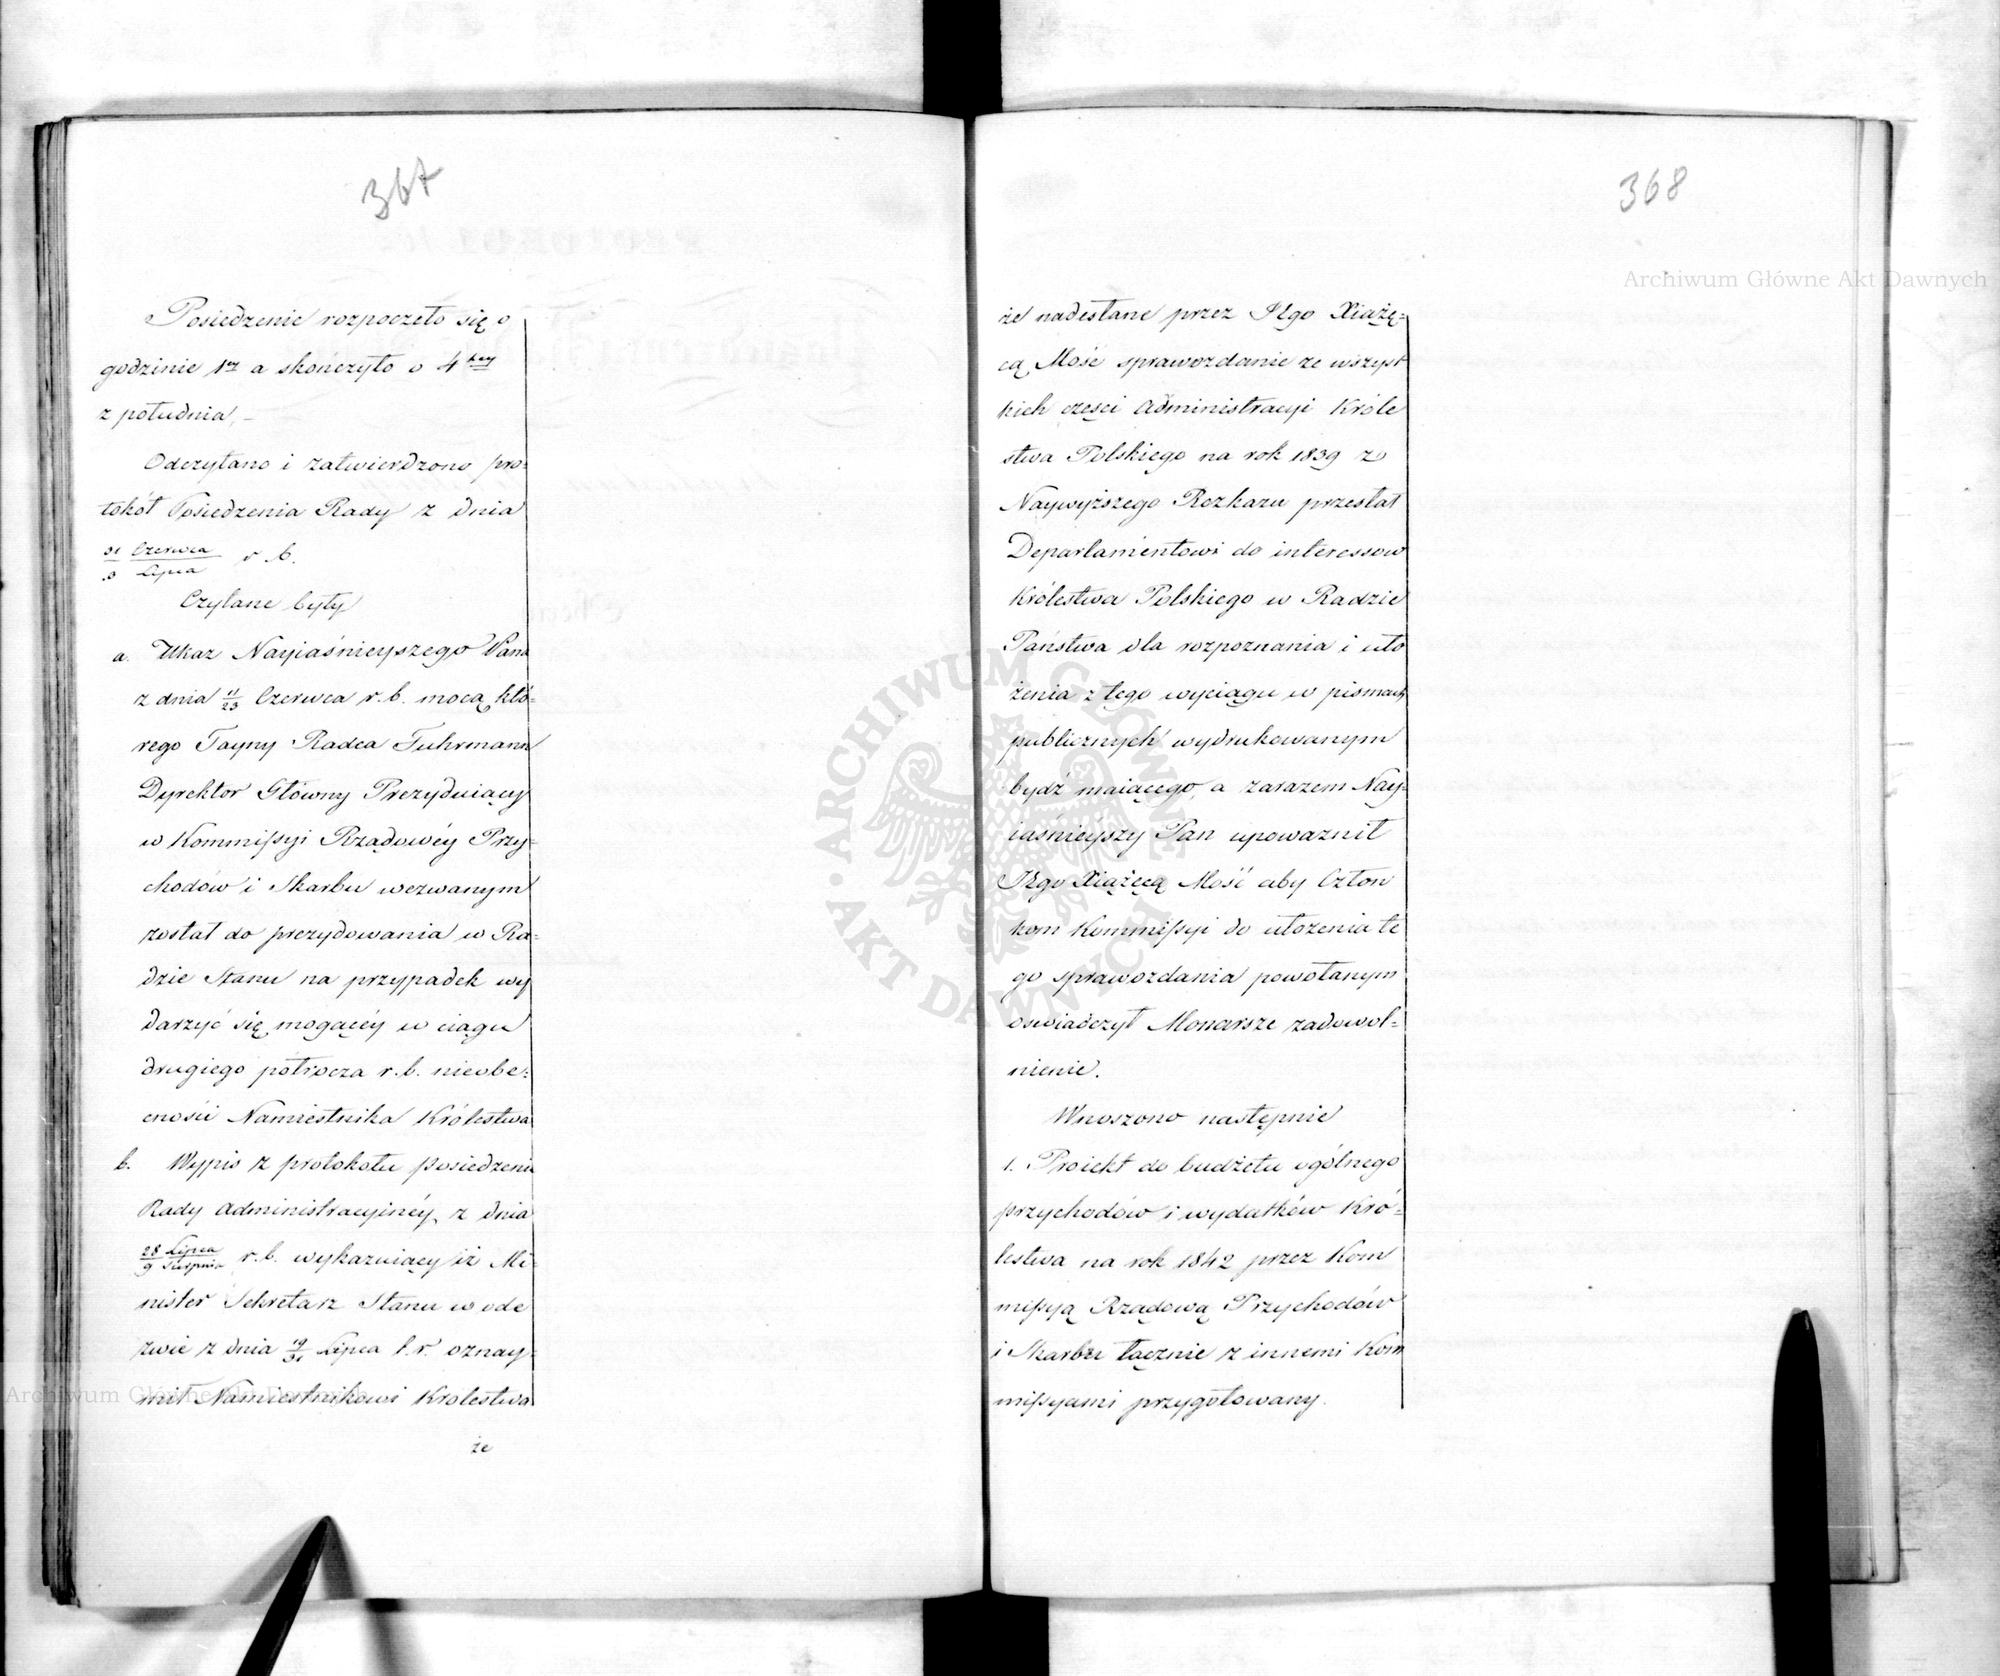 367
Posiedzenie rozpoczęło się o
godzinie 1ey a skończyło o 4tey
z południa. –
Odczytano i zatwierdzono pro=
tokół Posiedzenia Rady z dnia
21 Czerwca / 3 Lipca r. b.
Czytane były
a. Ukaz Nayiaśnieyszego Pana
z dnia 11/23 Czerwca r. b. mocą któ=
rego Tayny Radca Fuhrmann
Dyrektor Główny Prezyduiący
w Kommissyi Rządowéy Przy=
chodów i Skarbu wezwanym
został do prezydowania w Ra=
dzie Stanu na przypadek wy
darzyć się mogącéy w ciągu
drugiego półrocza r. b. nieobe=
cności Namiestnika Królestwa
b. Wypis z protokołu posiedzenia
Rady Administracyinéy z dnia
28 Lipca / 9 Sierpnia r. b. wykazuiący iż Mi=
nister Sekretarz Stanu w ode
zwie z dnia 19/31 Lipca t. r. oznay=
mił Namiestnikowi Królestwa
że
368
Archiwum Główne Akt Dawnych
że nadesłane przez Jego Xiążę=
cą Mość sprawozdanie ze wszyst
kich części Administracyi Króle
stwa Polskiego na rok 1839 z
Naywyższego Rozkazu przesłał
Departamentowi do interessow
Królestwa Polskiego w Radzie
Państwa dla rozpoznania i uło
żenia z tego wyciągu w pismach
publicznych wydrukowanym
bydź maiącego, a zarazem Nay=
iaśnieyszy Pan upoważnił
Jego Xiążęcą Mość aby Człon
kom Kommissyi do ułożenia te
go sprawozdania powołanym
oświadczył Monarsze zadowol=
nienie.
Wnoszono następnie
1. Proiekt do budżetu ogólnego
przychodów i wydatków Kró=
lestwa na rok 1842 przez Kom
missyą Rządową Przychodów
i Skarbu łącznie z innemi Kom
missyami przygotowany.
ARCHIWUM GŁÓWNE
AKT DAWNYCH
Archiwum Główne Akt Dawnych